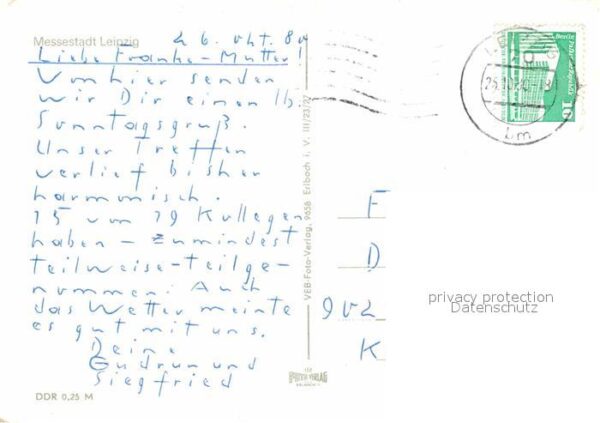 Messestadt Leipzig
26. Okt. 80
Liebe Franke-Mutter!
Von hier senden
wir Dir einen lb.
Sonntagsgruß.
Unser Treffen
verlief bisher
harmonisch.
15 von 19 Kollegen
haben – zumindest
teilweise – teilge-
nommen. Auch
das Wetter meinte
es gut mit uns.
Deine
Gudrun und
Siegfried
DDR 0,25 M
VEB-Foto-Verlag, 9658 Erlbach i. V. III/23/77
F
D
902
K
10
privacy protection
Datenschutz